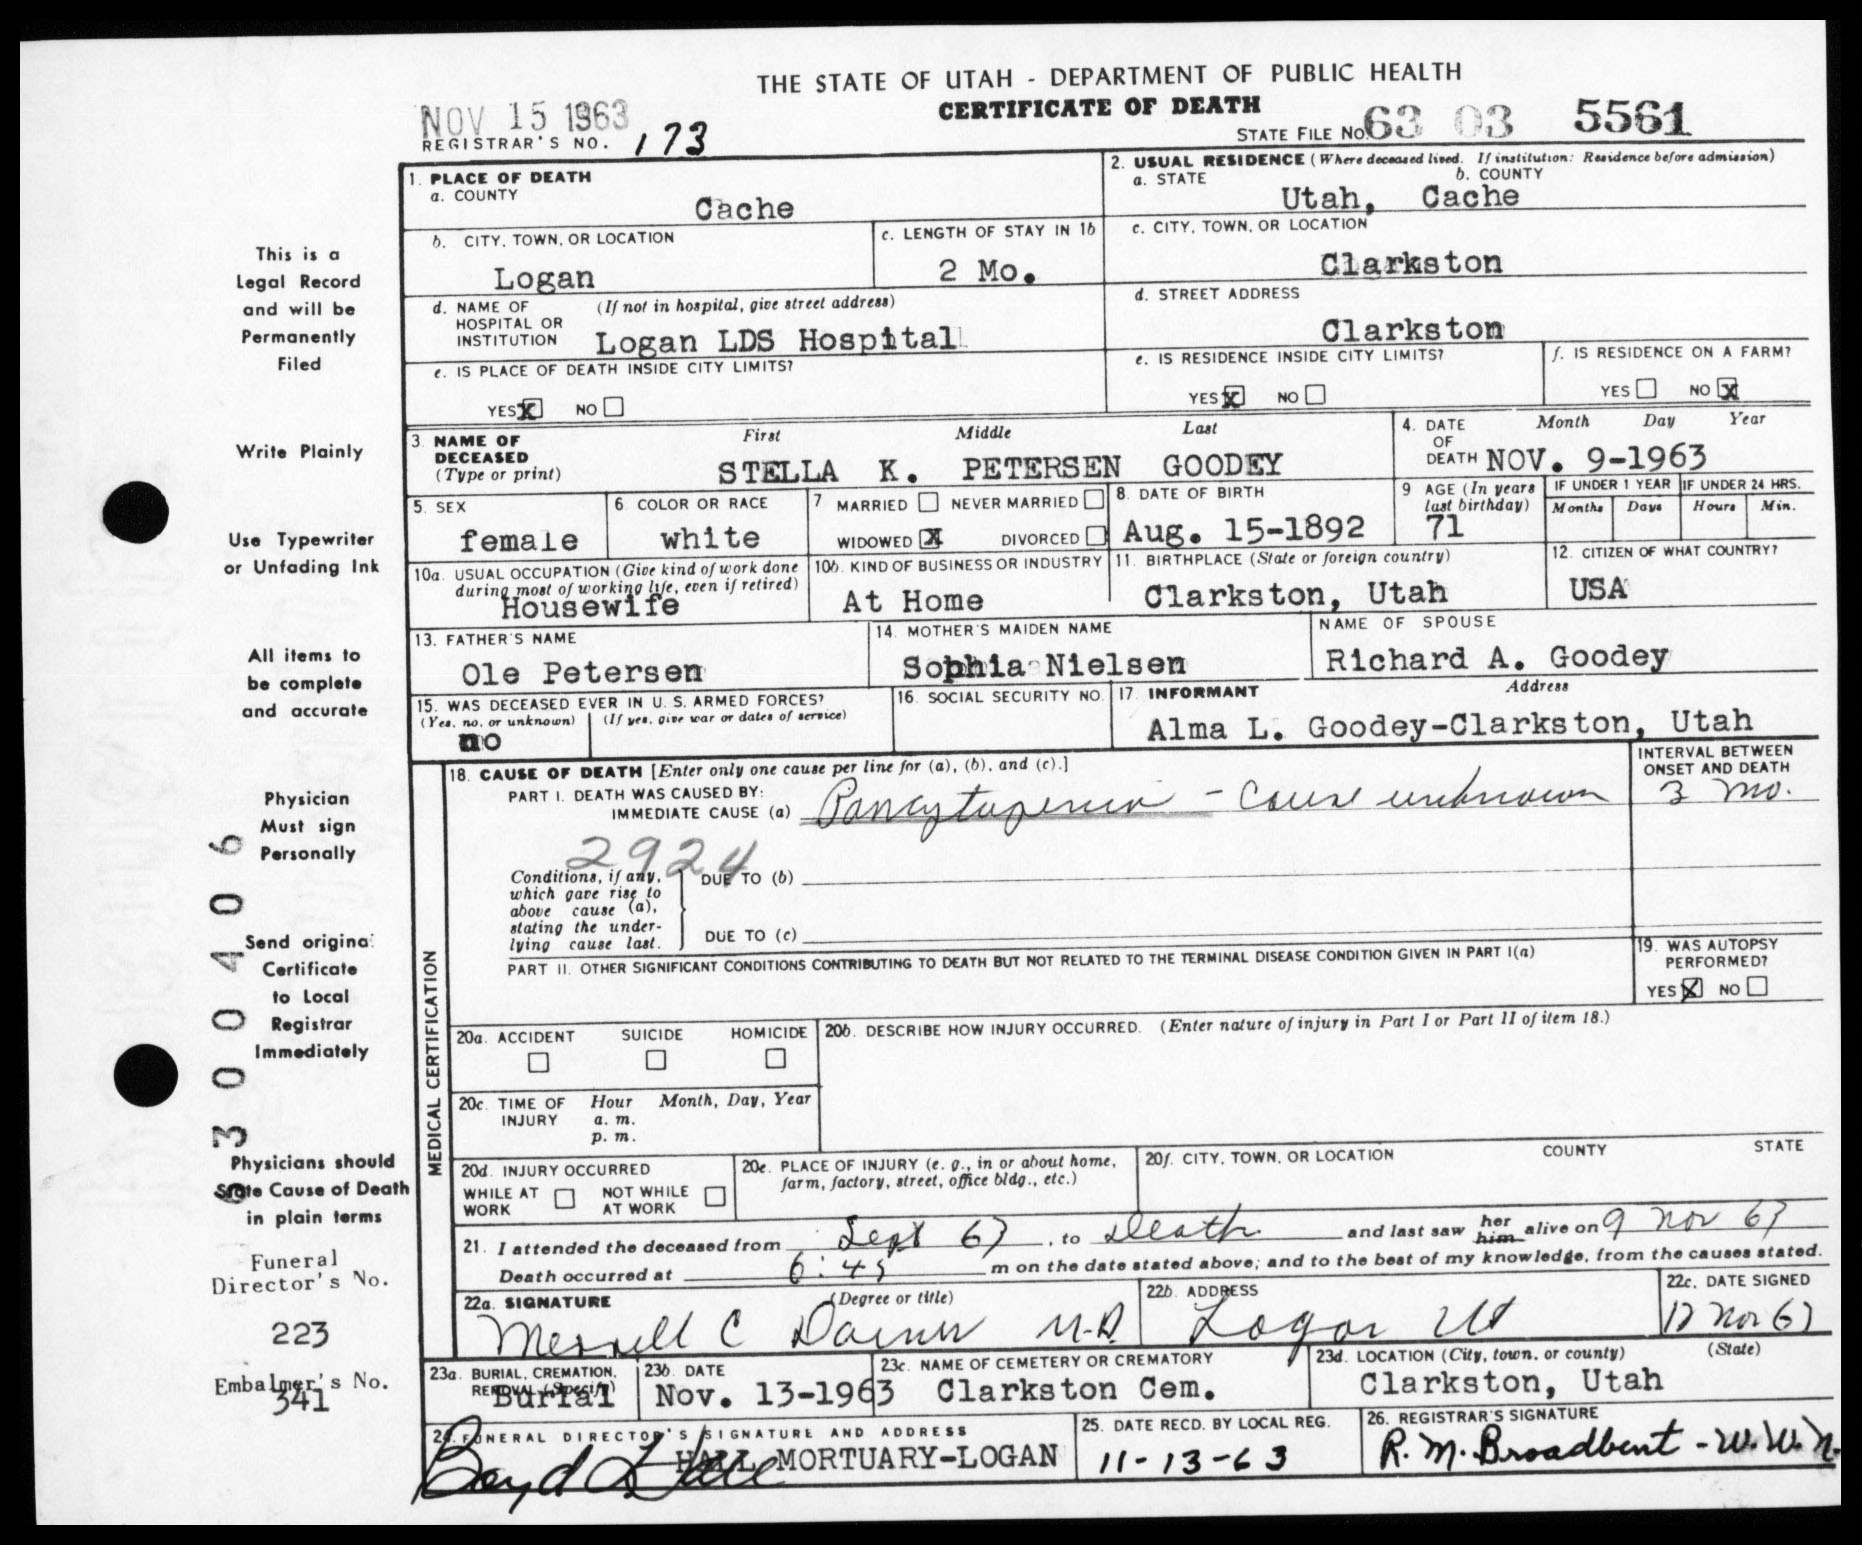 THE STATE OF UTAH - DEPARTMENT OF PUBLIC HEALTH
CERTIFICATE OF DEATH
NOV 15 1963
REGISTRAR'S NO. 173
STATE FILE NO. 63 03 5561
This is a
Legal Record
and will be
Permanently
Filed
Write Plainly
Use Typewriter
or Unfading Ink
All items to
be complete
and accurate
Physician
Must sign
Personally
Send original
Certificate
to Local
Registrar
Immediately
Physicians should
State Cause of Death
in plain terms
6300406
Funeral
Director's No.
223
Embalmer's No.
341
1. PLACE OF DEATH
a. COUNTY
Cache
2. USUAL RESIDENCE (Where deceased lived. If institution: Residence before admission)
a. STATE b. COUNTY
Utah, Cache
b. CITY, TOWN, OR LOCATION
Logan
c. LENGTH OF STAY IN 1b
2 Mo.
c. CITY, TOWN, OR LOCATION
Clarkston
d. NAME OF (If not in hospital, give street address)
HOSPITAL OR
INSTITUTION Logan LDS Hospital
d. STREET ADDRESS
Clarkston
e. IS PLACE OF DEATH INSIDE CITY LIMITS?
YES X NO
e. IS RESIDENCE INSIDE CITY LIMITS?
YES X NO
f. IS RESIDENCE ON A FARM?
YES NO X
3. NAME OF DECEASED
(Type or print)
First Middle Last
STELLA K. PETERSEN GOODEY
4. DATE OF DEATH
Month Day Year
NOV. 9-1963
5. SEX
female
6. COLOR OR RACE
white
7 MARRIED NEVER MARRIED
WIDOWED X DIVORCED
8. DATE OF BIRTH
Aug. 15-1892
9 AGE (In years
last birthday)
71
IF UNDER 1 YEAR IF UNDER 24 HRS.
Months Days Hours Min.
10a. USUAL OCCUPATION (Give kind of work done
during most of working life, even if retired)
Housewife
10b. KIND OF BUSINESS OR INDUSTRY
At Home
11. BIRTHPLACE (State or foreign country)
Clarkston, Utah
12. CITIZEN OF WHAT COUNTRY?
USA
13. FATHER'S NAME
Ole Petersen
14. MOTHER'S MAIDEN NAME
Sophia Nielsen
NAME OF SPOUSE
Richard A. Goodey
15. WAS DECEASED EVER IN U.S. ARMED FORCES?
(Yes, no, or unknown) (If yes, give war or dates of service)
no
16. SOCIAL SECURITY NO.
17. INFORMANT Address
Alma L. Goodey-Clarkston, Utah
MEDICAL CERTIFICATION
18. CAUSE OF DEATH [Enter only one cause per line for (a), (b), and (c).]
PART I. DEATH WAS CAUSED BY:
IMMEDIATE CAUSE (a) Pancytopenia - Cause unknown
INTERVAL BETWEEN
ONSET AND DEATH
3 mo.
2924
Conditions, if any,
which gave rise to
above cause (a),
stating the under-
lying cause last.
DUE TO (b)
DUE TO (c)
PART II. OTHER SIGNIFICANT CONDITIONS CONTRIBUTING TO DEATH BUT NOT RELATED TO THE TERMINAL DISEASE CONDITION GIVEN IN PART I(a)
19. WAS AUTOPSY
PERFORMED?
YES X NO
20a. ACCIDENT SUICIDE HOMICIDE
20b. DESCRIBE HOW INJURY OCCURRED. (Enter nature of injury in Part I or Part II of item 18.)
20c. TIME OF INJURY
Hour Month, Day, Year
a. m.
p. m.
20d. INJURY OCCURRED
WHILE AT WORK NOT WHILE AT WORK
20e. PLACE OF INJURY (e. g., in or about home,
farm, factory, street, office bldg., etc.)
20f. CITY, TOWN, OR LOCATION COUNTY STATE
21. I attended the deceased from Sept 63, to Death and last saw her him alive on 9 Nov 63
Death occurred at 6:45 m on the date stated above; and to the best of my knowledge, from the causes stated.
22a. SIGNATURE (Degree or title)
Merrell C Daines M.D.
22b. ADDRESS
Logan Ut
22c. DATE SIGNED
12 Nov 63
23a. BURIAL, CREMATION,
REMOVAL (Specify)
Burial
23b. DATE
Nov. 13-1963
23c. NAME OF CEMETERY OR CREMATORY
Clarkston Cem.
23d. LOCATION (City, town, or county) (State)
Clarkston, Utah
24. FUNERAL DIRECTOR'S SIGNATURE AND ADDRESS
Boyd L Hall
HALL MORTUARY-LOGAN
25. DATE RECD. BY LOCAL REG.
11-13-63
26. REGISTRAR'S SIGNATURE
R. M. Broadbent - W. W. N.